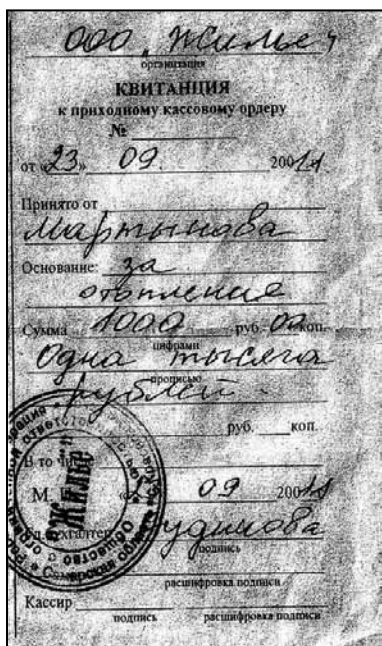 ООО „Жилье"
организация
КВИТАНЦИЯ
к приходному кассовому ордеру
№
от «23» 09. 2001г
Принято от
Мартынова
Основание: за
отопление
Сумма 1000 руб. 00 коп.
цифрами
Одна тысяча
прописью
рублей -
руб. коп.
В то числе
М. П. 09 2001г
Гл. бухгалтер
подпись
расшифровка подписи
Кассир
подпись расшифровка подписи
"Жилье"